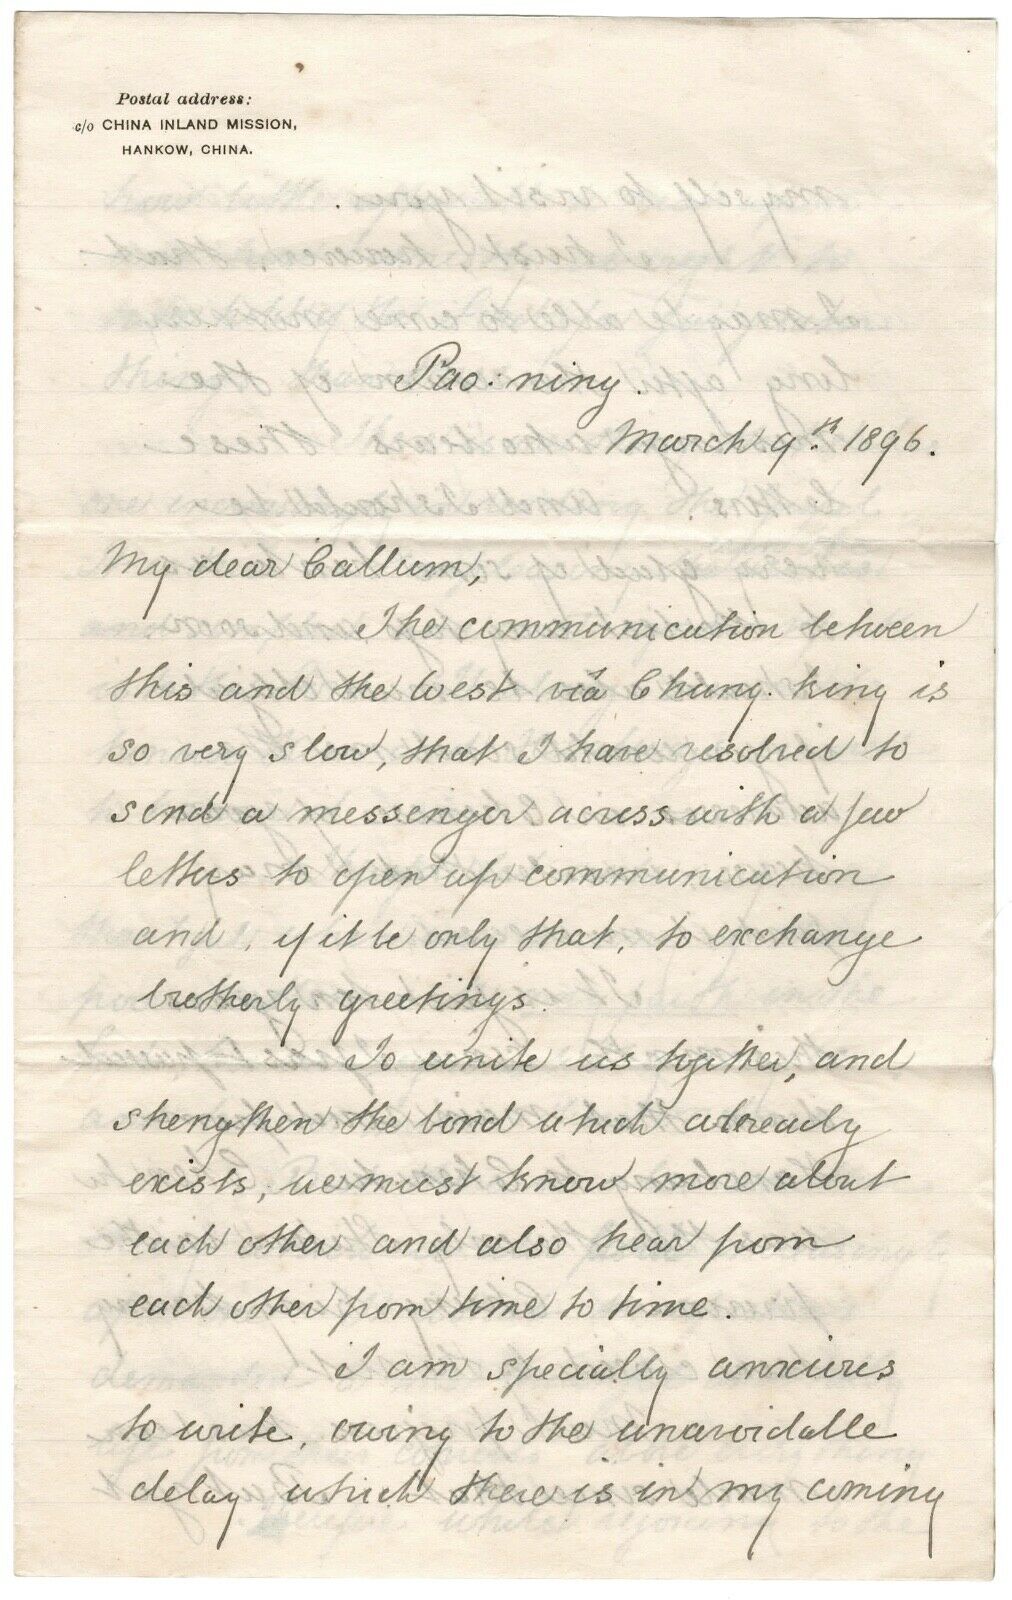 Postal address:
c/o CHINA INLAND MISSION,
HANKOW, CHINA.
Pao: ning.
March 9th. 1896.
My dear Callum,
The communication between
this and the West viâ Chung. king is
so very slow, that I have resolved to
send a messenger across with a few
letters to open up communication
and, if it be only that, to exchange
brotherly greetings.
To unite us together, and
strengthen the bond which already
exists, we must know more about
each other and also hear from
each other from time to time.
I am specially anxious
to write, owing to the unavoidable
delay which there is in my coming